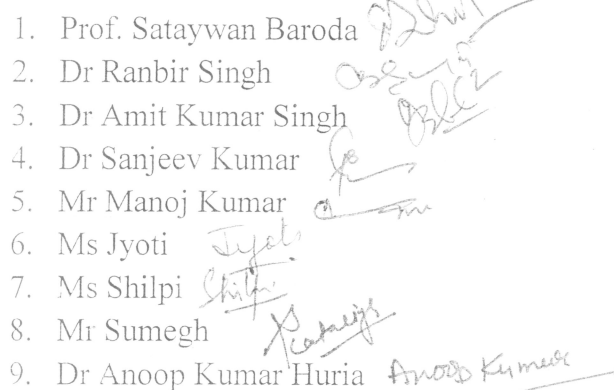 1. Prof. Sataywan Baroda
2. Dr Ranbir Singh
3. Dr Amit Kumar Singh
4. Dr Sanjeev Kumar
5. Mr Manoj Kumar
6. Ms Jyoti Jyoti
7. Ms Shilpi Shilpi
8. Mr Sumegh
9. Dr Anoop Kumar Huria Anoop Kumar